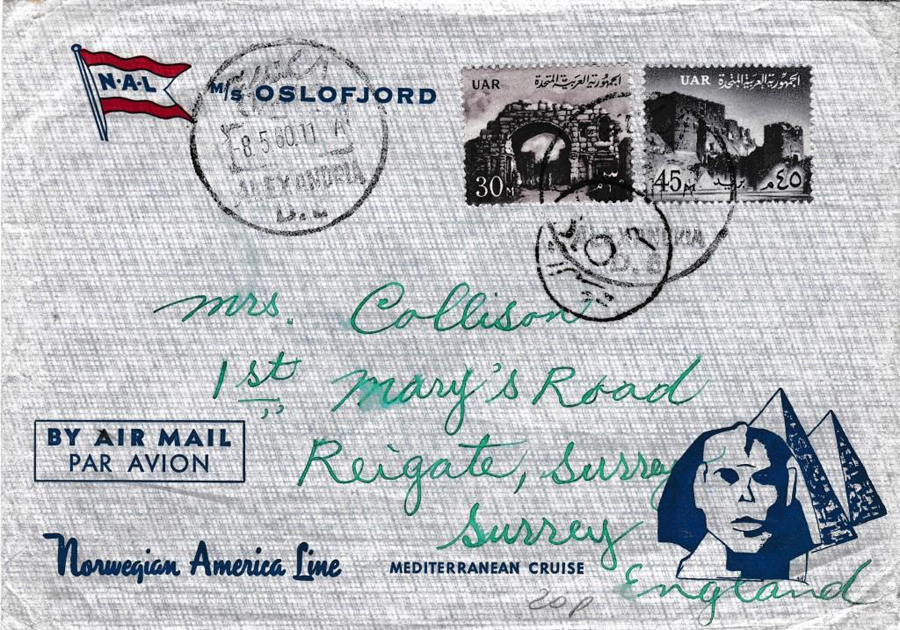 N·A·L
M/S OSLOFJORD
-8.5.60.11 A
ALEXANDRIA
UAR الجمهورية العربية المتحدة
30 M
UAR الجمهورية العربية المتحدة
45 M بريد ٤٥ م
Mrs. Collison
1st Mary's Road
Reigate, Surrey
Surrey
England
BY AIR MAIL
PAR AVION
Norwegian America Line
MEDITERRANEAN CRUISE
20p